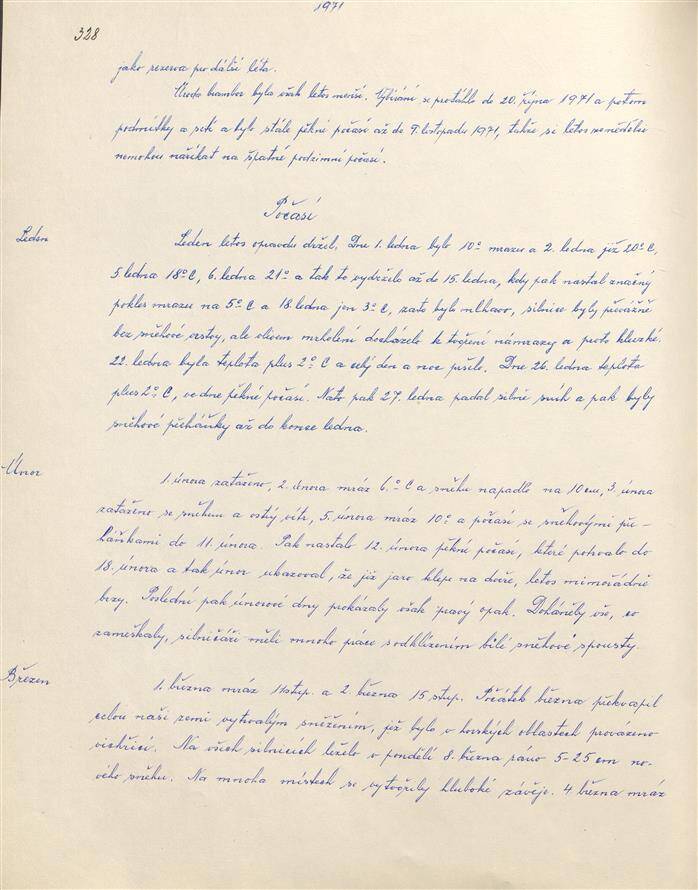 1971
328
jako rezerva pro další léta.
Úroda brambor byla však letos menší. Vybírání se protáhlo do 20. října 1971 a potom
podmítky a setí a bylo stále pěkné počasí až do 9. listopadu 1971, takže si letos zemědělci
nemohou naříkat na špatné podzimní počasí.
Počasí
Leden
Leden letos opravdu držel. Dne 1. ledna bylo 10° mrazu a 2. ledna již 20° C,
5. ledna 18° C, 6. ledna 21° a tak to vydrželo až do 15. ledna, kdy pak nastal značný
pokles mrazu na 5° C a 18. ledna jen 3° C, zato bylo mlhavo, silnice byly převážně
bez sněhové vrstvy, ale vlivem mrholení docházelo k tvoření námrazy a proto kluzké.
22. ledna byla teplota plus 2° C a celý den a noc pršelo. Dne 26. ledna teplota
plus 2° C, ve dne pěkné počasí. Nato pak 27. ledna padal silně sníh a pak byly
sněhové přeháňky až do konce ledna.
Únor
1. února zataženo, 2. února mráz 6° C a sněhu napadlo na 10 cm, 3. února
zataženo se sněhem a ostrý vítr, 5. února mráz 10° a počasí se sněhovými pře-
háňkami do 11. února. Pak nastalo 12. února pěkné počasí, které potrvalo do
18. února a tak únor ukazoval, že již jaro klepe na dveře, letos mimořádně
brzy. Poslední pak únorové dny prokázaly však pravý opak. Doháněly vše, co
zameškaly, silničáři měli mnoho práce s odklízením bílé sněhové spousty.
Březen
1. března mráz 11 stup. a 2. března 15 stup. Počátek března překvapil
celou naši zemi vytrvalým sněžením, jež bylo v horských oblastech provázeno
vichřicí. Na všech silnicích leželo v pondělí 8. března ráno 5-25 cm no-
vého sněhu. Na mnoha místech se vytvořily hluboké závěje. 4 března mráz